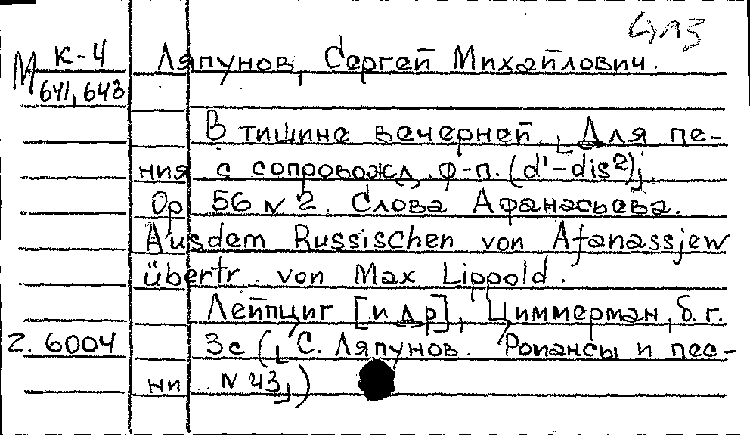 М К-4 Ляпунов, Сергей Михайлович.
641, 643
В тишине вечерней. [Для пе-
ния с сопровожд. ф-п. (d'-dis²)].
Op 56 № 2. Слова Афанасьева.
Aus dem Russischen von Afanassjew
übertr. von Max Lippold.
Лейпциг [и др], Циммерман, б.г.
Z. 6004 3с ([С. Ляпунов. Романсы и пес-
ни. № 43])